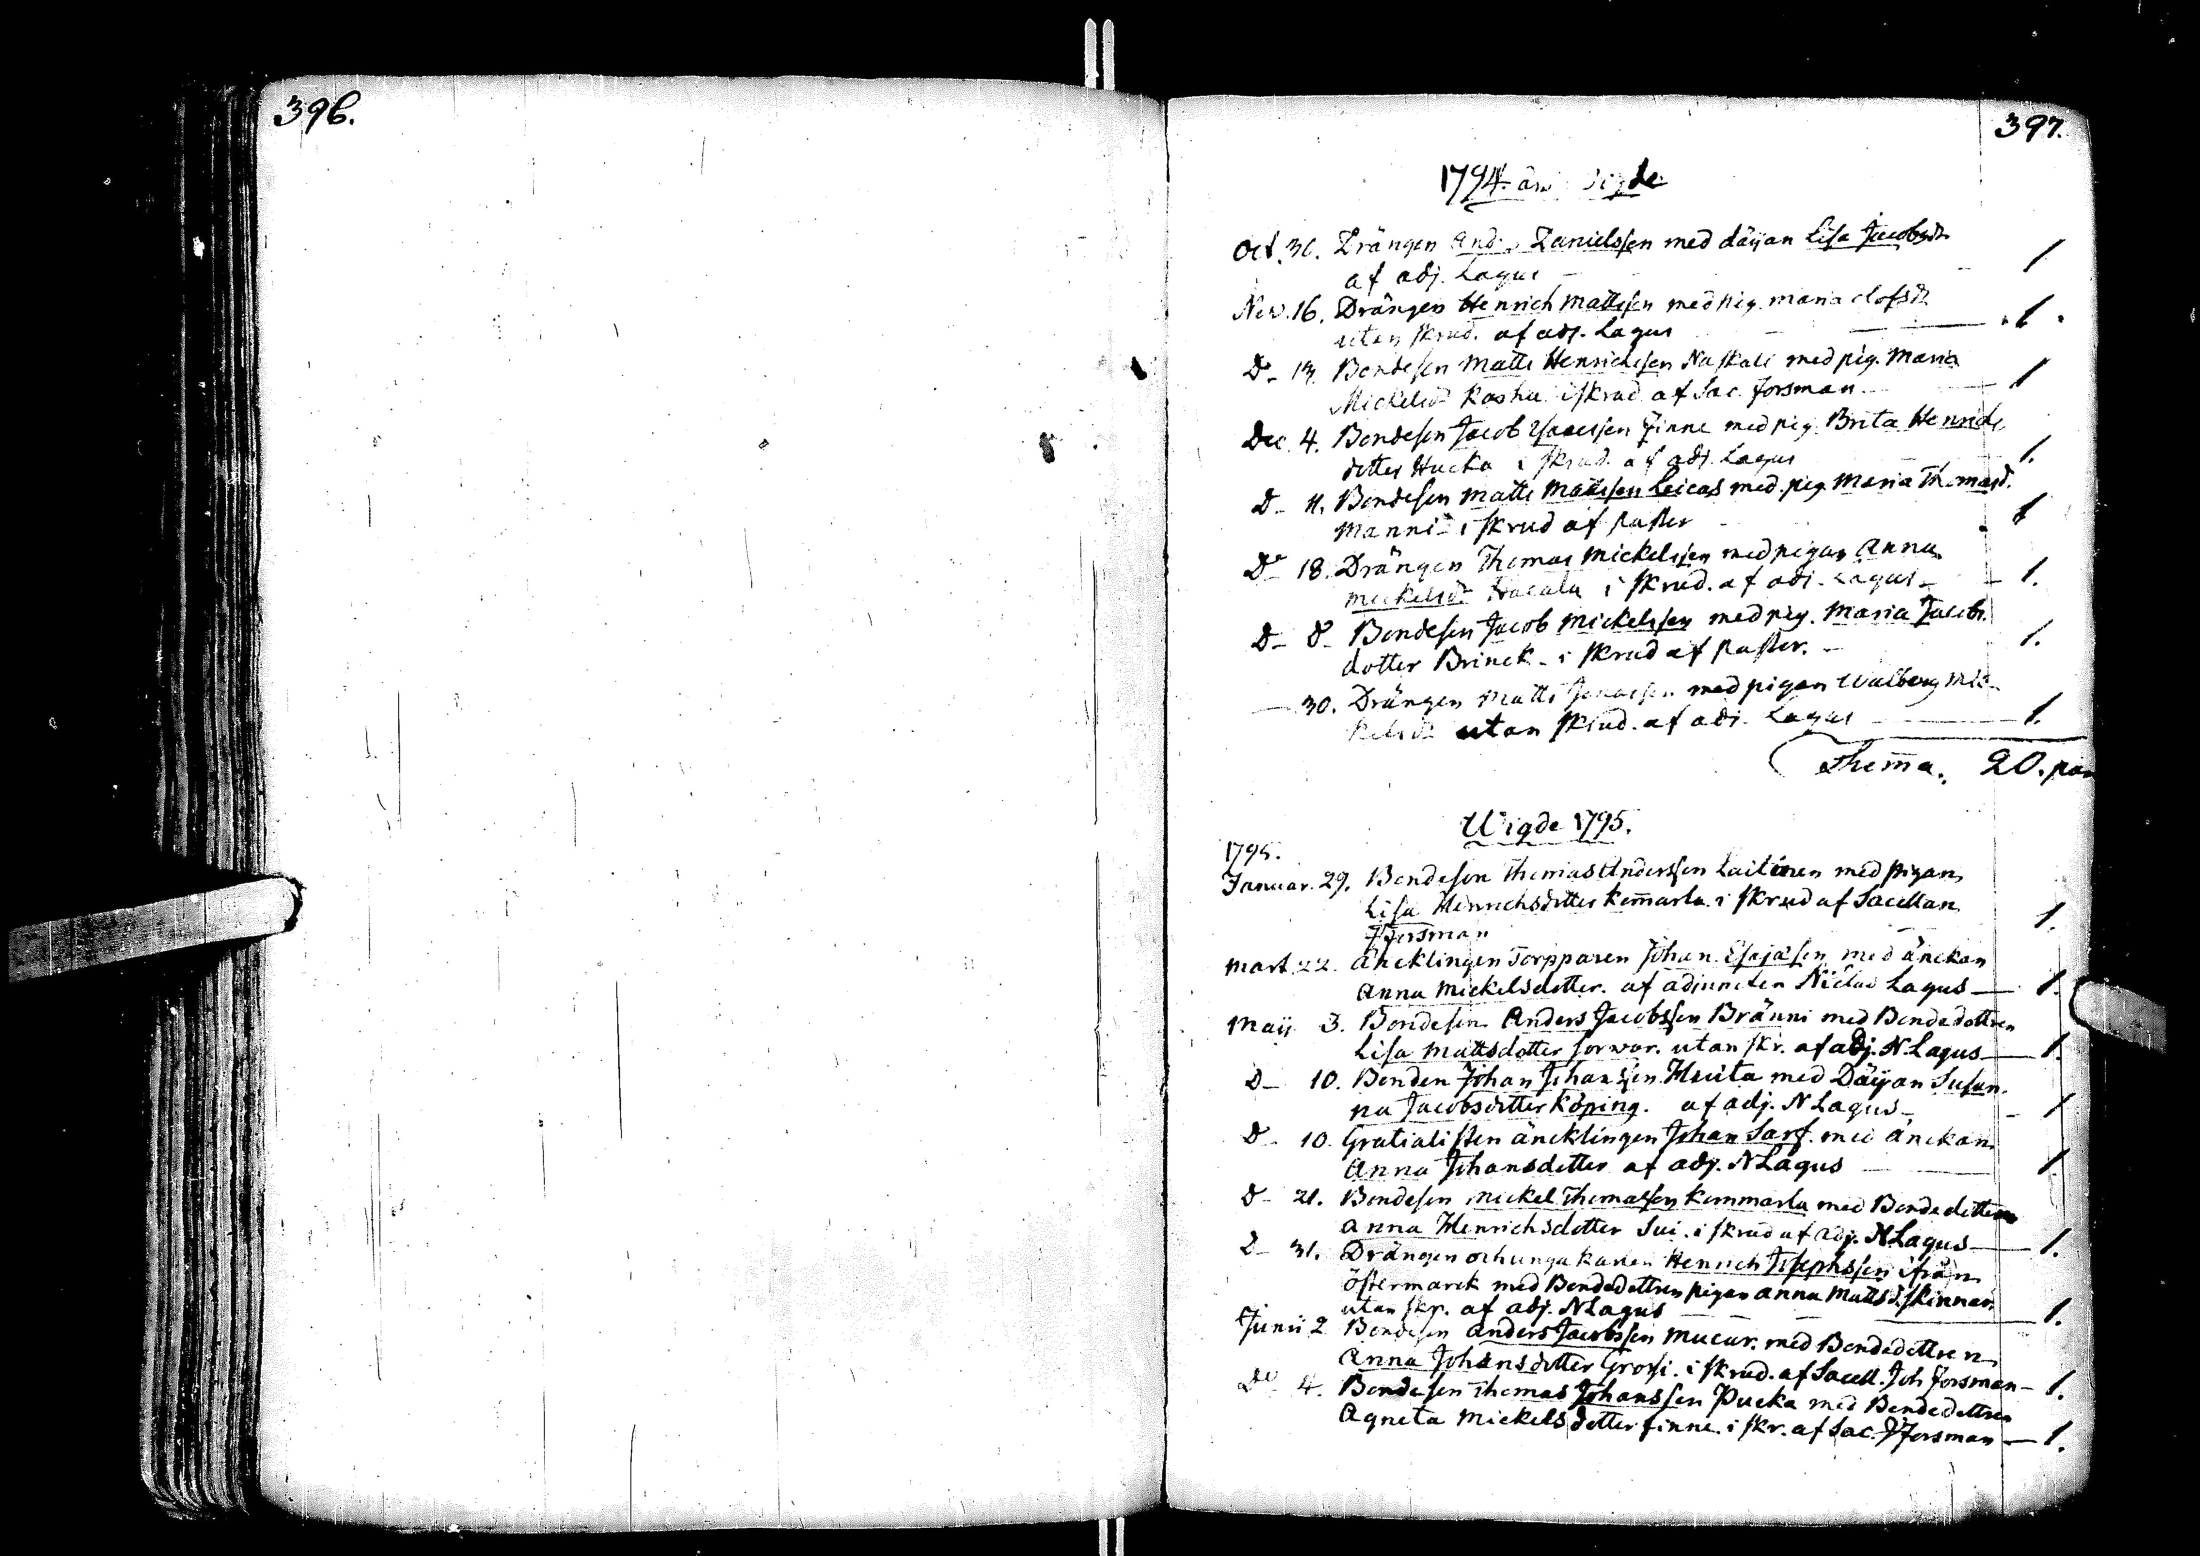 396.
397.
1794. års wigde
Oct. 30. Drängen And. Danielsson med däijan Lisa Jacobsdr
af adj. Lagus 1
Nov. 16. Drängen Henrich Mattsson med pig. Maria Olofsdr
utan skrud. af adj. Lagus 1.
D- 13. Bondeson Matts Henrichsson Naskali med pig. Maria
Mickelsdr i skrud af Sac. Forsman 1
Dec. 4. Bondeson Jacob Isacsson Finne med pig. Brita Henrichs
dotter Hucka i skrud. af adj. Lagus 1.
D- 11. Bondeson Matts Mattsson Leicas med pig. Maria Thomasd.
Manni- i skrud af pastor 1
Do 18. Drängen Thomas Mickelsson med pigan Anna
Mickelsdr i skrud. af adj. Lagus - 1.
D- D- Bondeson Jacob Mickelsson med pig. Maria Jacobs
dotter Brinck - i skrud af pastor. 1.
- 30. Drängen Matts med pigan Walborg Mic-
kelsdr utan skrud. af adj. Lagus 1.
Summa. 20. par
Wigde 1795.
1795.
Januar. 29. Bondeson Thomas Andersson Laitinen med pigan
Lisa Henrichsdotter Kem̄arla i skrud af Sacellan
JForsman 1.
Mart. 22. Äncklingen Torpparen Johan Esajasson med änckan
Anna Mickelsdotter. af adjuncten Niclas Lagus - 1.
Maij 3. Bondeson Anders Jacobsson Bränni med Bondedottren
Lisa Mattsdotter Sorwar. utan skr. af adj. N. Lagus - 1.
D- 10. Bonden Johan Johansson Houta med Däijan Susan-
na Jacobsdotter Köping. af adj. N Lagus - 1
D- 10. Gratialisten äncklingen Johan Sarf. med änckan
Anna Johansdotter af adj. N Lagus 1
D- 21. Bondeson Mickel Thomasson Kemmarla med Bondedottren
Anna Henrichsdotter Sui. i skrud af adj. N Lagus - 1.
D- 31. Drängen och unga karlen Henrich Josephsson ifrån
Östermarck med Bondedottren pigan Anna Matts d. Skinnari
utan skr. af adj. N Lagus 1.
Junii 2 Bondeson Anders Jacobsson Mucur. med Bondedottren
Anna Johansdotter Grossi. i skrud. af Sacell. Joh Forsman - 1.
Do 4. Bondeson Thomas Johansson Pucka med Bondedottren
Agneta Mickelsdotter Finne. i skr. af Sac. JForsman - 1.